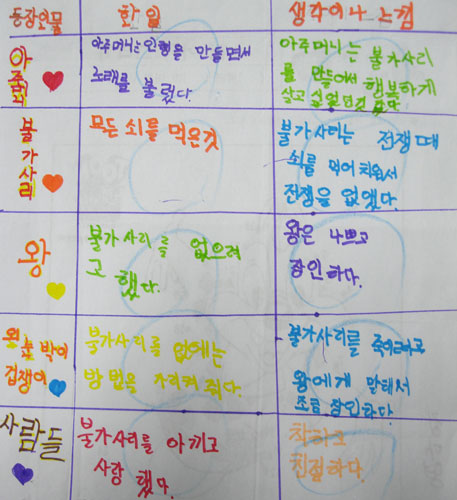 등장인물
한 일
생각이나 느낌
아줌머니
아주머니는 인형을 만들면서
노래를 불렀다.
아주머니는 불가사리
를 만들어서 행복하게
살고 싶었던것 같다
불가사리
모든 쇠를 먹은것
불가사리는 전쟁때
쇠를 먹어치워서
전쟁을 없앴다.
왕
불가사리를 없으려
고 했다.
왕은 나쁘고
잔인하다.
왼눈박이
겁쟁이
불가사리를 없에는
방법을 가리켜줬다.
불가사리를 죽이려고
왕에게 말해서
조금 잔인하다
사람들
불가사리를 아끼고
사랑했다.
착하고
친절하다.